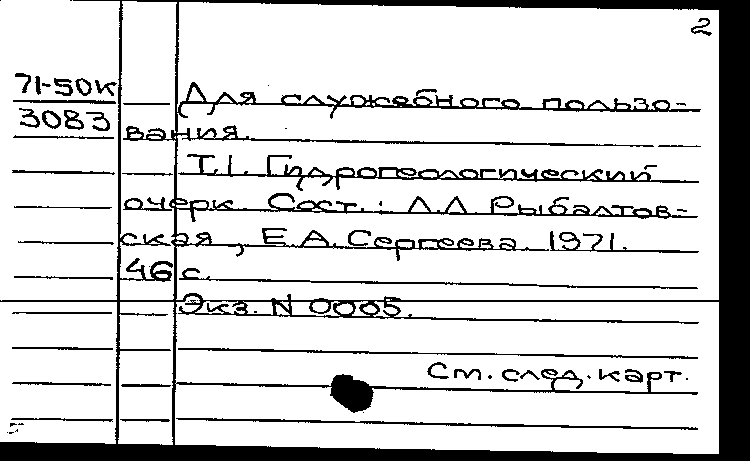 2
71-50к
3083
Для служебного пользо-
вания.
Т.1. Гидрогеологический
очерк. Сост.: Л.Л. Рыбалтов-
ская, Е.А. Сергеева. 1971.
46 с.
Экз. N 0005.
См. след. карт.